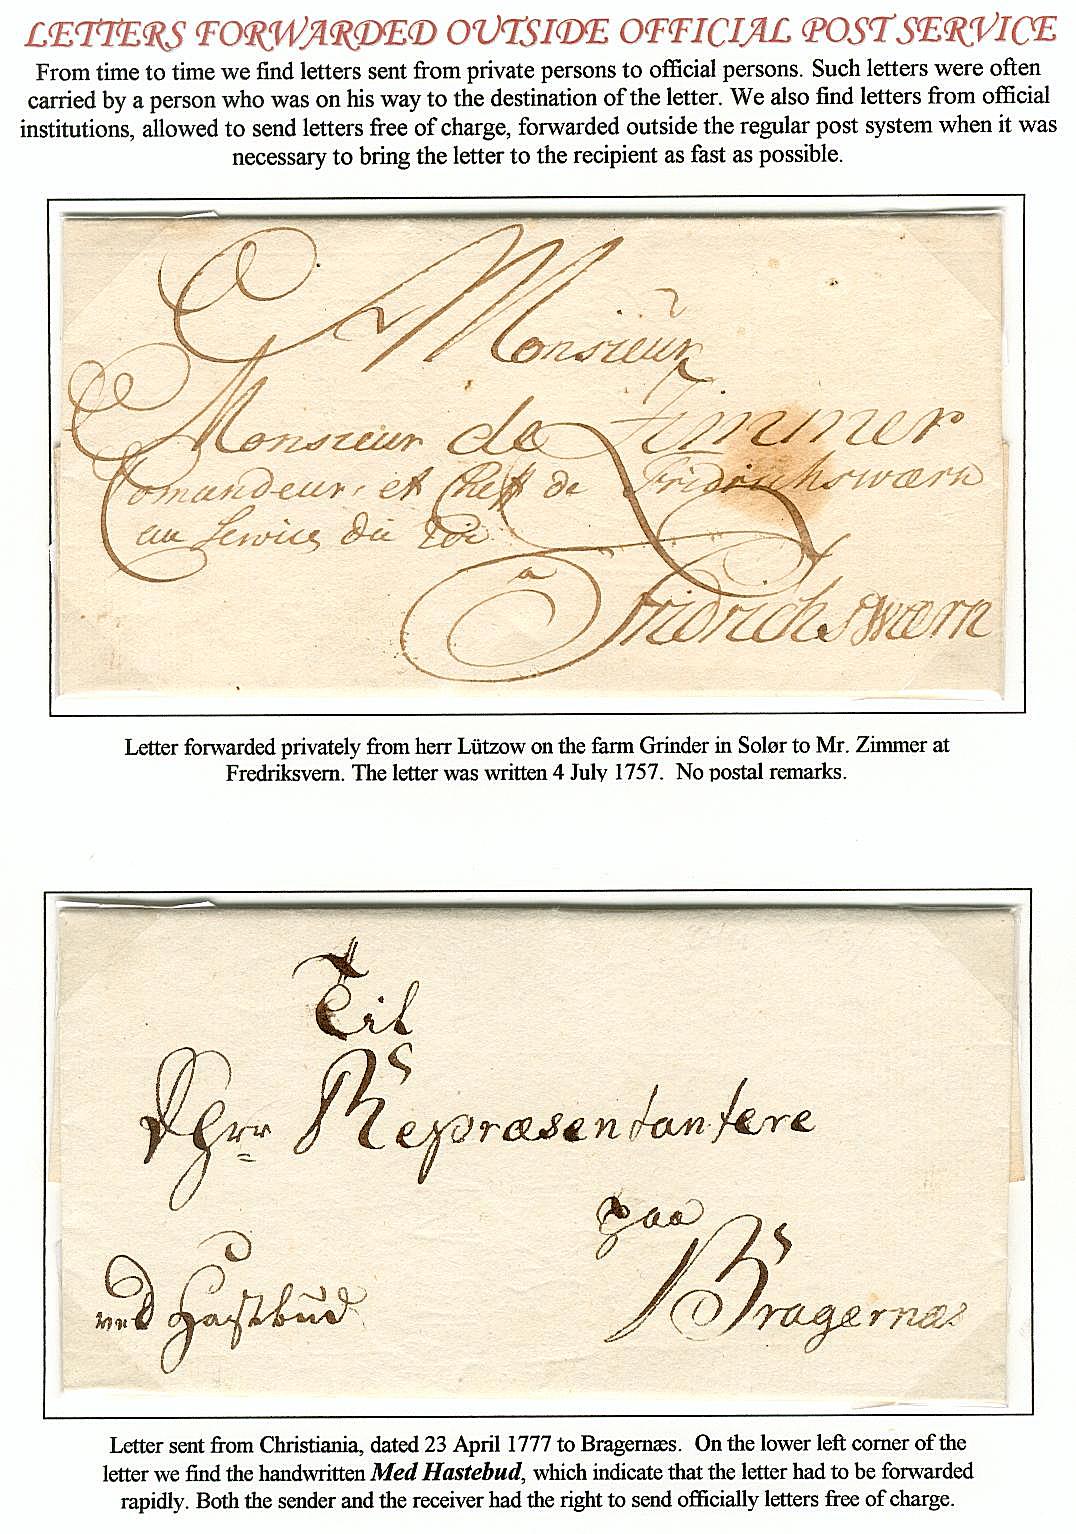 LETTERS FORWARDED OUTSIDE OFFICIAL POST SERVICE
From time to time we find letters sent from private persons to official persons. Such letters were often
carried by a person who was on his way to the destination of the letter. We also find letters from official
institutions, allowed to send letters free of charge, forwarded outside the regular post system when it was
necessary to bring the letter to the recipient as fast as possible.
A Monsieur
Monsieur de Zimmer
Comandeur, et Cheff de Fridrichswærn
au Service du Roi
a
Fridrichswærn
Letter forwarded privately from herr Lützow on the farm Grinder in Solør to Mr. Zimmer at
Fredriksvern. The letter was written 4 July 1757. No postal remarks.
Til
Repræsentantere
paa
Bragernæs
Hastbud
Letter sent from Christiania, dated 23 April 1777 to Bragernæs. On the lower left corner of the
letter we find the handwritten Med Hastebud, which indicate that the letter had to be forwarded
rapidly. Both the sender and the receiver had the right to send officially letters free of charge.